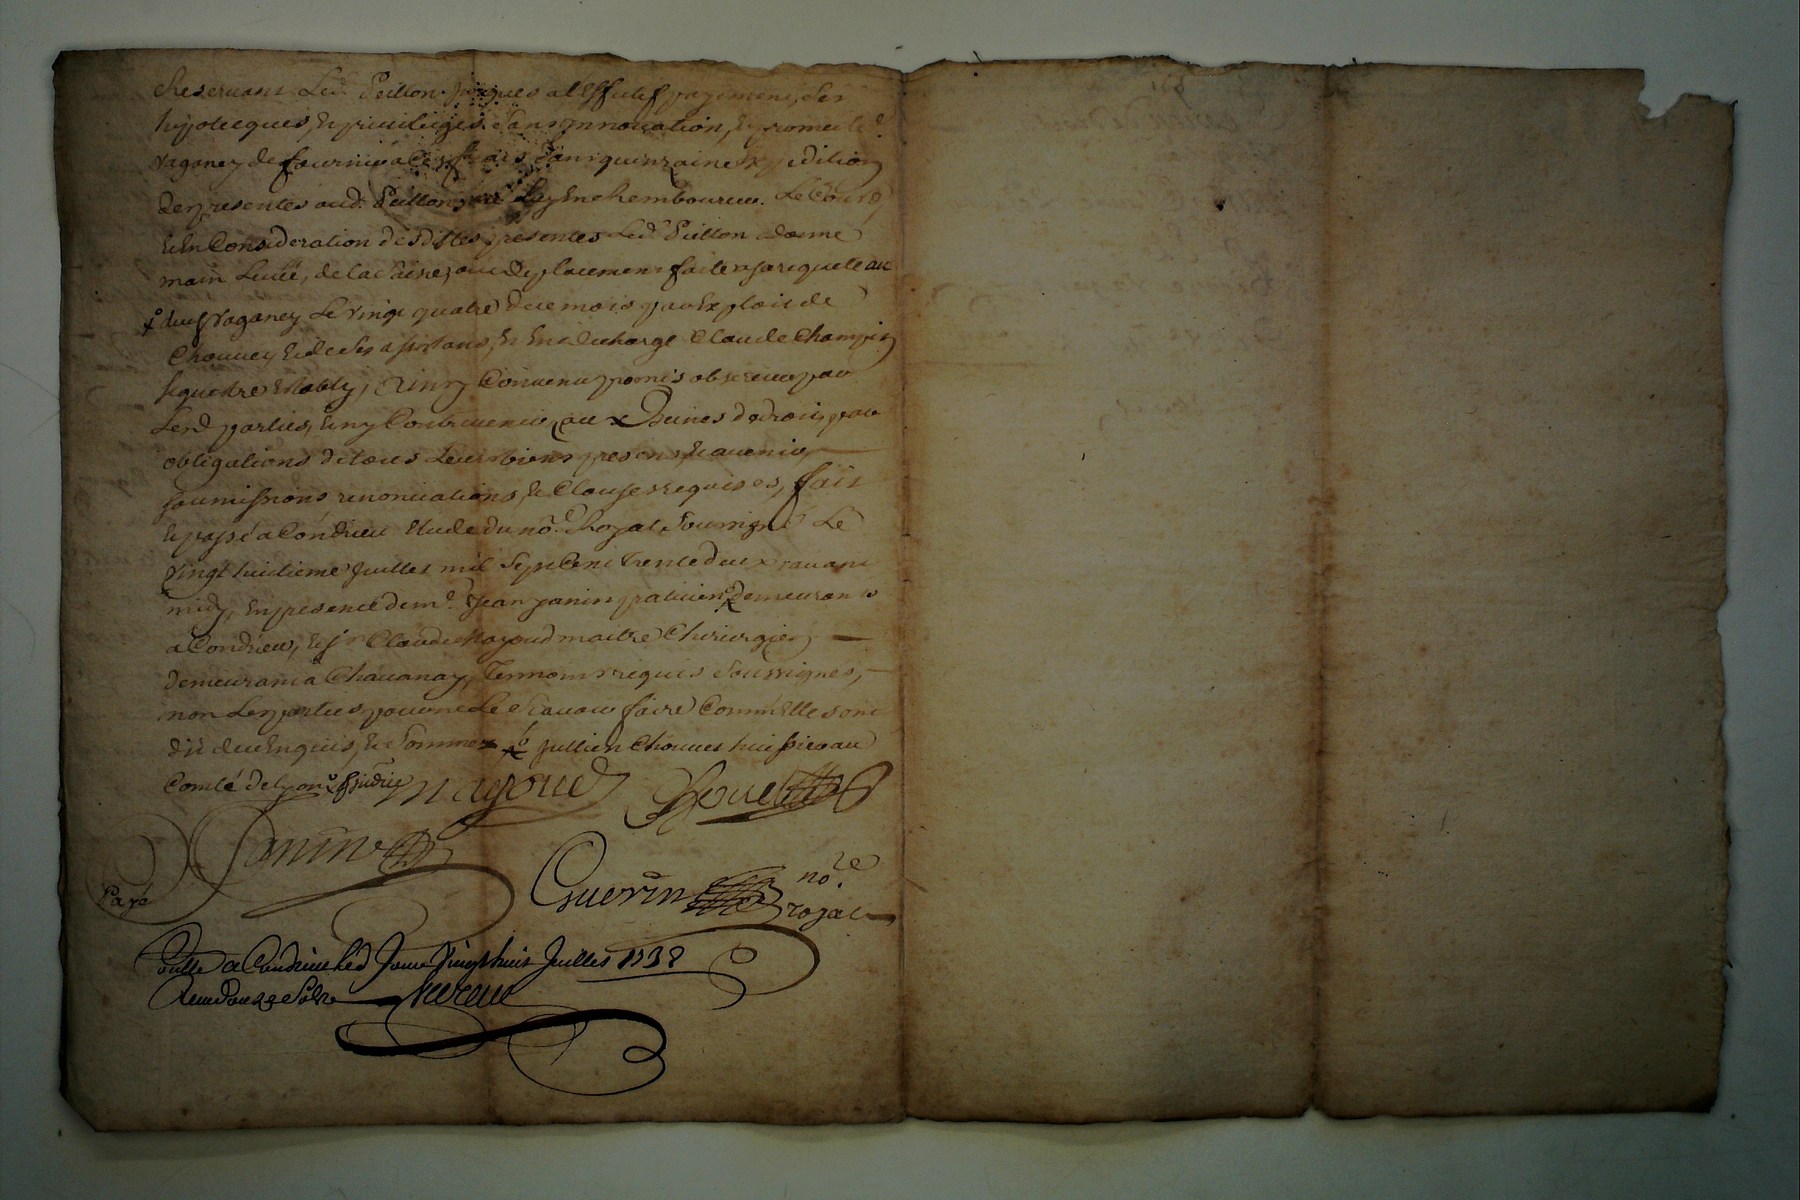 Reservant Led. Peillon jusques a l'Effectif payement, ses
hypotecques, & privilèges sans innovation, & promet le d.
Vaganey de fournir a ses frais dans quinzaine Expedition
des presentes aud. Peillon, Le Cours
& En Consideration desdittes presentes Led. Peillon donne
main Levée, de la saisie, faite a sa requete au
dud Vaganey Le vingt quatre du ce mois par Exploit de
Chouuet & de ses assistans, & En decharge Claude Champin
sequestre Etably, Ainsy Convenu promis observer par
Lesd parties, & ny Contrevenir, aux Peines de droit, par
obligations de tous Leurs biens presens & avenir,
soumissions renonciations, & Clauses requises, fait
& passé a Condrieu Etude du no.re Royal soussigné Le
vingt huitieme Juillet mil sept Cent trente deux avant
midy, En presence de m.e Jean Janin praticien demeurant
a Condrieu, & sr Claude Nayoud maitre Chirurgien
demeurant a Chavanay, Temoins requis soussignes,
non Les parties pour ne Le scavoir faire Comm'Elles ont
dit de ce Enquis, & Sommes Jullien Chouuet huissier au
Comté de Lyon
Nayoud Chouet
Janin
Guerin no.re
royal
Payé
a Condrieu Led Jour vingt huit Juillet 1732
Receu douze sols